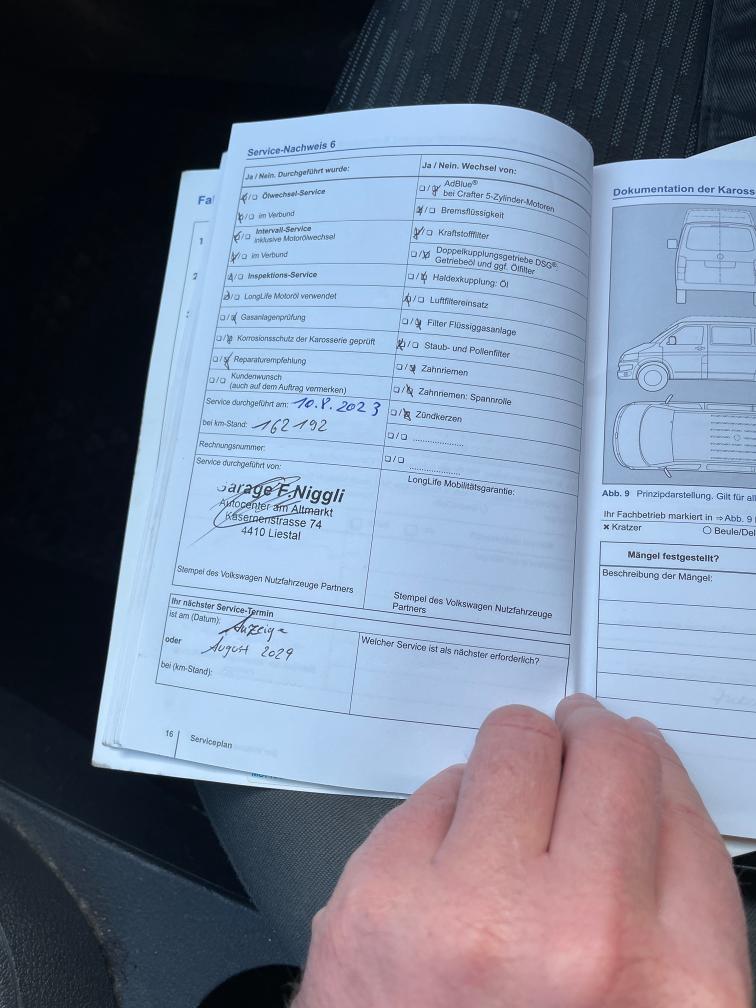 Service-Nachweis 6
Ja / Nein. Durchgeführt wurde:
☒/☐ Ölwechsel-Service
☒/☐ im Verbund
☒/☐ Intervall-Service
inklusive Motorölwechsel
☒/☐ im Verbund
☒/☐ Inspektions-Service
☒/☐ LongLife Motoröl verwendet
☐/☒ Gasanlagenprüfung
☐/☒ Korrosionsschutz der Karosserie geprüft
☐/☒ Reparaturempfehlung
☐/☐ Kundenwunsch
(auch auf dem Auftrag vermerken)
Service durchgeführt am: 10.8.2023
bei km-Stand: 162192
Rechnungsnummer:
Service durchgeführt von:
Garage F. Niggli
Autocenter am Altmarkt
Kasernenstrasse 74
4410 Liestal
Stempel des Volkswagen Nutzfahrzeuge Partners
Ja / Nein. Wechsel von:
☐/☒ AdBlue®
bei Crafter 5-Zylinder-Motoren
☒/☐ Bremsflüssigkeit
☒/☐ Kraftstofffilter
☐/☒ Doppelkupplungsgetriebe DSG®:
Getriebeöl und ggf. Ölfilter
☐/☒ Haldexkupplung: Öl
☒/☐ Luftfiltereinsatz
☐/☒ Filter Flüssiggasanlage
☒/☐ Staub- und Pollenfilter
☐/☒ Zahnriemen
☐/☒ Zahnriemen: Spannrolle
☐/☒ Zündkerzen
☐/☐ ....................
☐/☐ ....................
LongLife Mobilitätsgarantie:
Stempel des Volkswagen Nutzfahrzeuge
Partners
Ihr nächster Service-Termin
ist am (Datum): Anzeige
oder August 2024
bei (km-Stand):
Welcher Service ist als nächster erforderlich?
16 Serviceplan
Fa
1
2
Dokumentation der Kaross
Abb. 9 Prinzipdarstellung. Gilt für al
Ihr Fachbetrieb markiert in ⇒Abb. 9
× Kratzer ○ Beule/Del
Mängel festgestellt?
Beschreibung der Mängel: